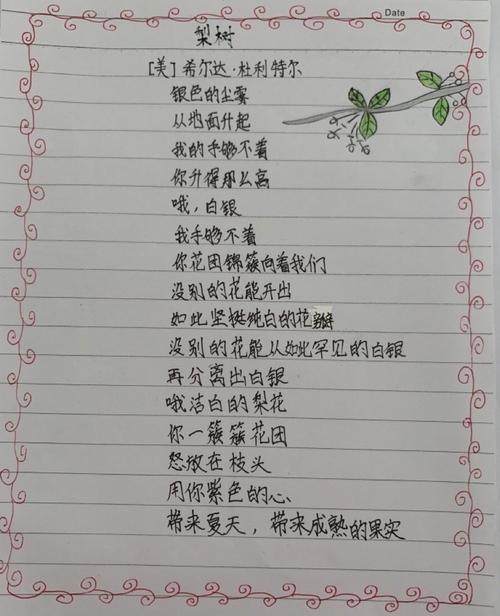 Date
梨树
[美]希尔达·杜利特尔
银色的尘雾
从地面升起
我的手够不着
你升得那么高
哦，白银
我手够不着
你花团锦簇向着我们
没别的花能开出
如此坚挺纯白的花瓣
没别的花能从如此罕见的白银
再分离出白银
哦洁白的梨花
你一簇簇花团
怒放在枝头
用你紫色的心
带来夏天，带来成熟的果实